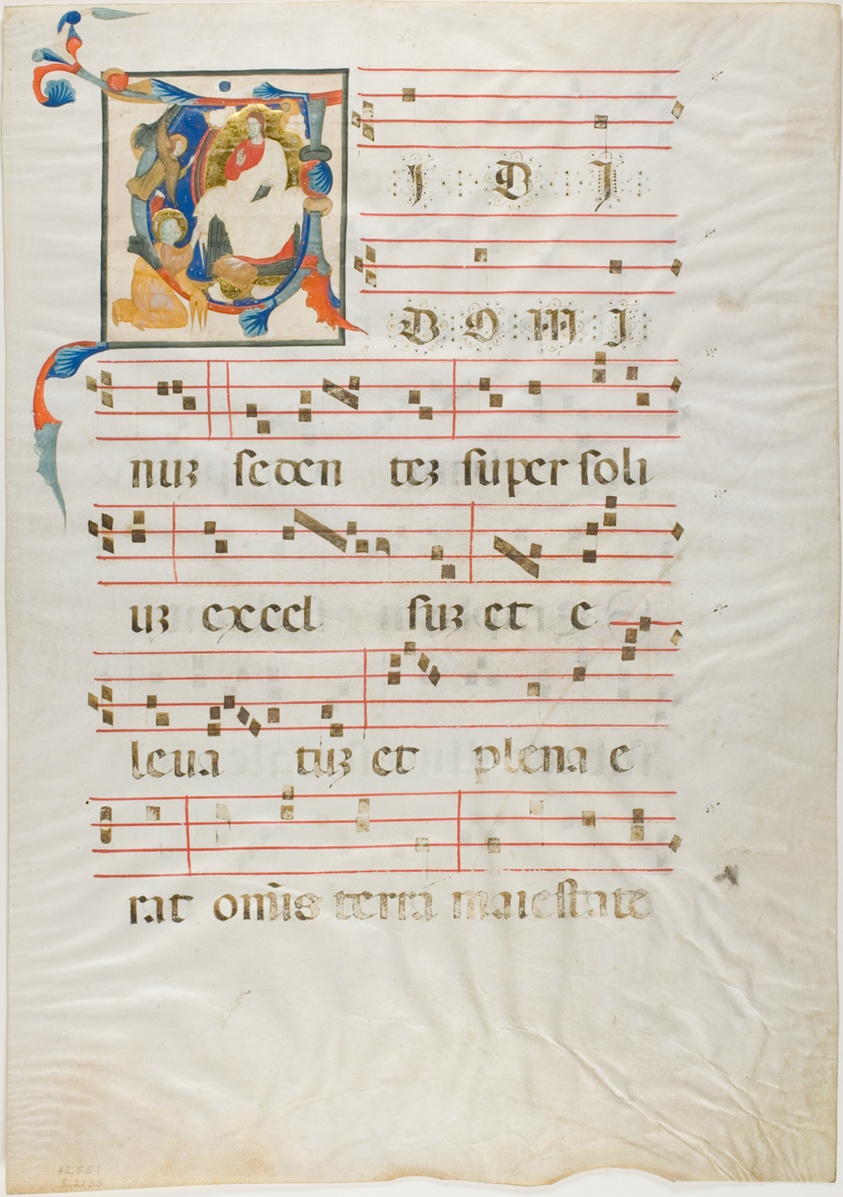 VIDI
DOMI
nuz seden tez super soli
uz excel suz et e
leva tuz et plena e
rat om̄is terra maiestate
42.551